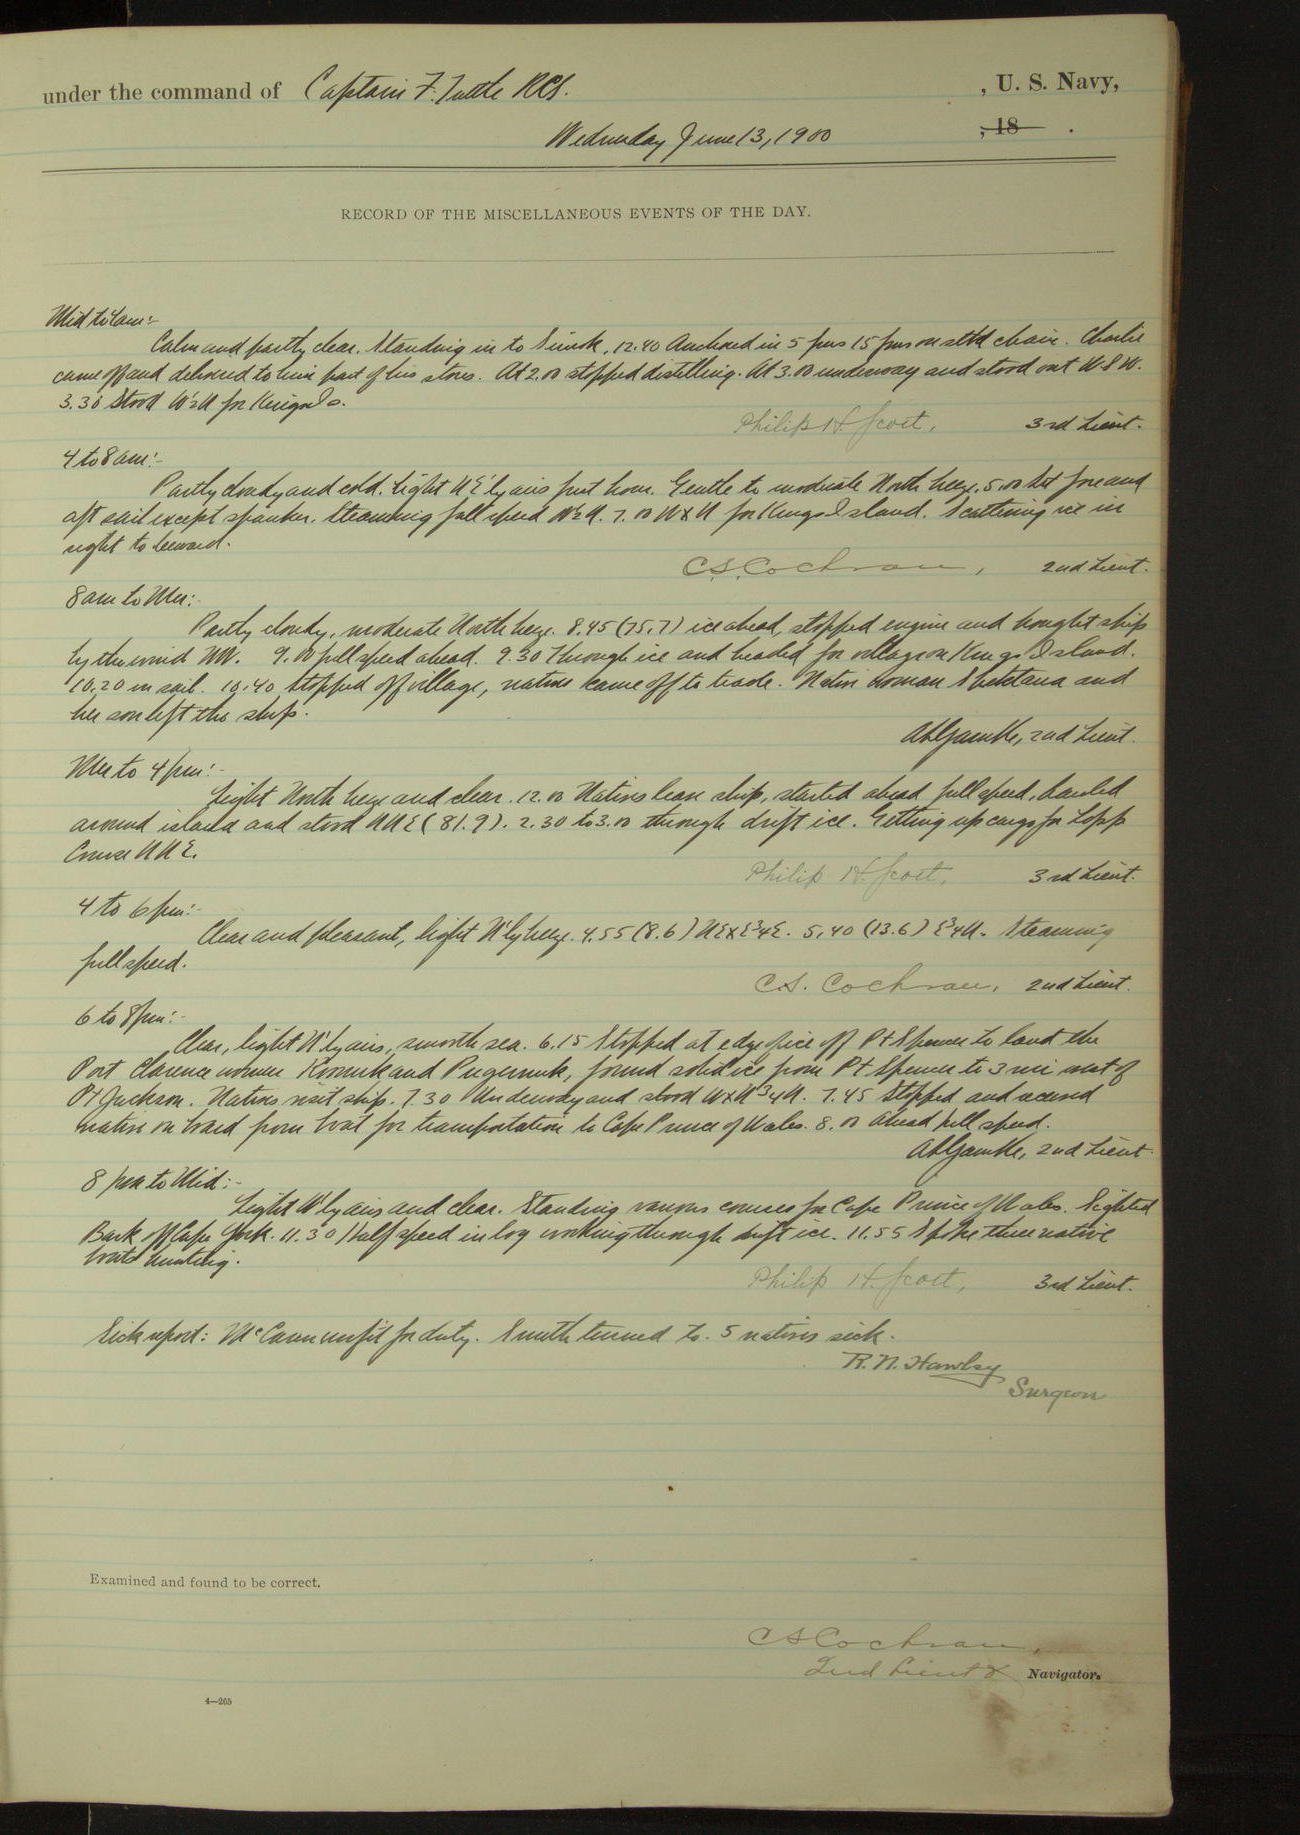 under the command of Captain F. Tuttle RCS. , U. S. Navy,
Wednesday June 13, 1900 , 18 .
RECORD OF THE MISCELLANEOUS EVENTS OF THE DAY.
Mid to 4am:-
Calm and partly clear. Standing in to Sinrok. 12.40 Anchored in 5 fms 15 fms on stbd chain. Charlie
came off and delivered to him part of his stores. At 2.00 stopped distilling. At 3.00 underway and stood out W.S.W.
3.30 Stood W½N for Kings Is.
Philip H. Scott, 3rd Lieut.
4 to 8 am:-
Partly cloudy and cold. Light N'E'ly airs first hour. Gentle to moderate North breeze. 5.00 set fore and
aft sail except spanker. Steaming full speed W½N. 7.00 WxN for Kings Island. Scattering ice in
sight to leeward.
C.S. Cochran, 2nd Lieut.
8am to Mer:-
Partly cloudy, moderate North breeze. 8.45 (75.7) ice ahead, stopped engine and brought ship
by the wind NW. 9.00 full speed ahead. 9.30 Through ice and headed for village on Kings Island.
10.20 in sail. 10.40 Stopped off village, natives came off to trade. Native woman and
her son left the ship.
2nd Lieut.
Mer to 4 pm:-
Light North breeze and clear. 12.00 Natives leave ship, started ahead full speed, hauled
around island and stood NNE (81.9). 2.30 to 3.00 through drift ice. Getting up cargo for Lopp
Course NNE.
Philip H. Scott, 3rd Lieut.
4 to 6 pm:-
Clear and pleasant, light N'ly breeze. 4.55 (8.6) NExE¾E. 5.40 (13.6) E¾N. Steaming
full speed.
C.S. Cochran, 2nd Lieut.
6 to 8pm:-
Clear, light N'ly airs, smooth sea. 6.15 Stopped at edge of ice off Pt Spencer to land the
Port Clarence women and , found solid ice from Pt Spencer to 3 mi west of
Pt Jackson. Natives visit ship. 7.30 Underway and stood WxN¾N. 7.45 Stopped and received
natives on board from boat for transportation to Cape Prince of Wales. 8.00 ahead full speed.
2nd Lieut.
8 pm to Mid:-
Light N'ly airs and clear. Standing various courses for Cape Prince of Wales. Sighted
Bark off Cape York. 11.30 Half speed in log working through drift ice. 11.55 Spoke three native
boats hunting.
Philip H. Scott, 3rd Lieut.
Sick report: McCann unfit for duty. Smith turned to. 5 natives sick.
R. N. Hawley
Surgeon
Examined and found to be correct.
C S Cochran,
2nd Lieut & Navigator.
4—265